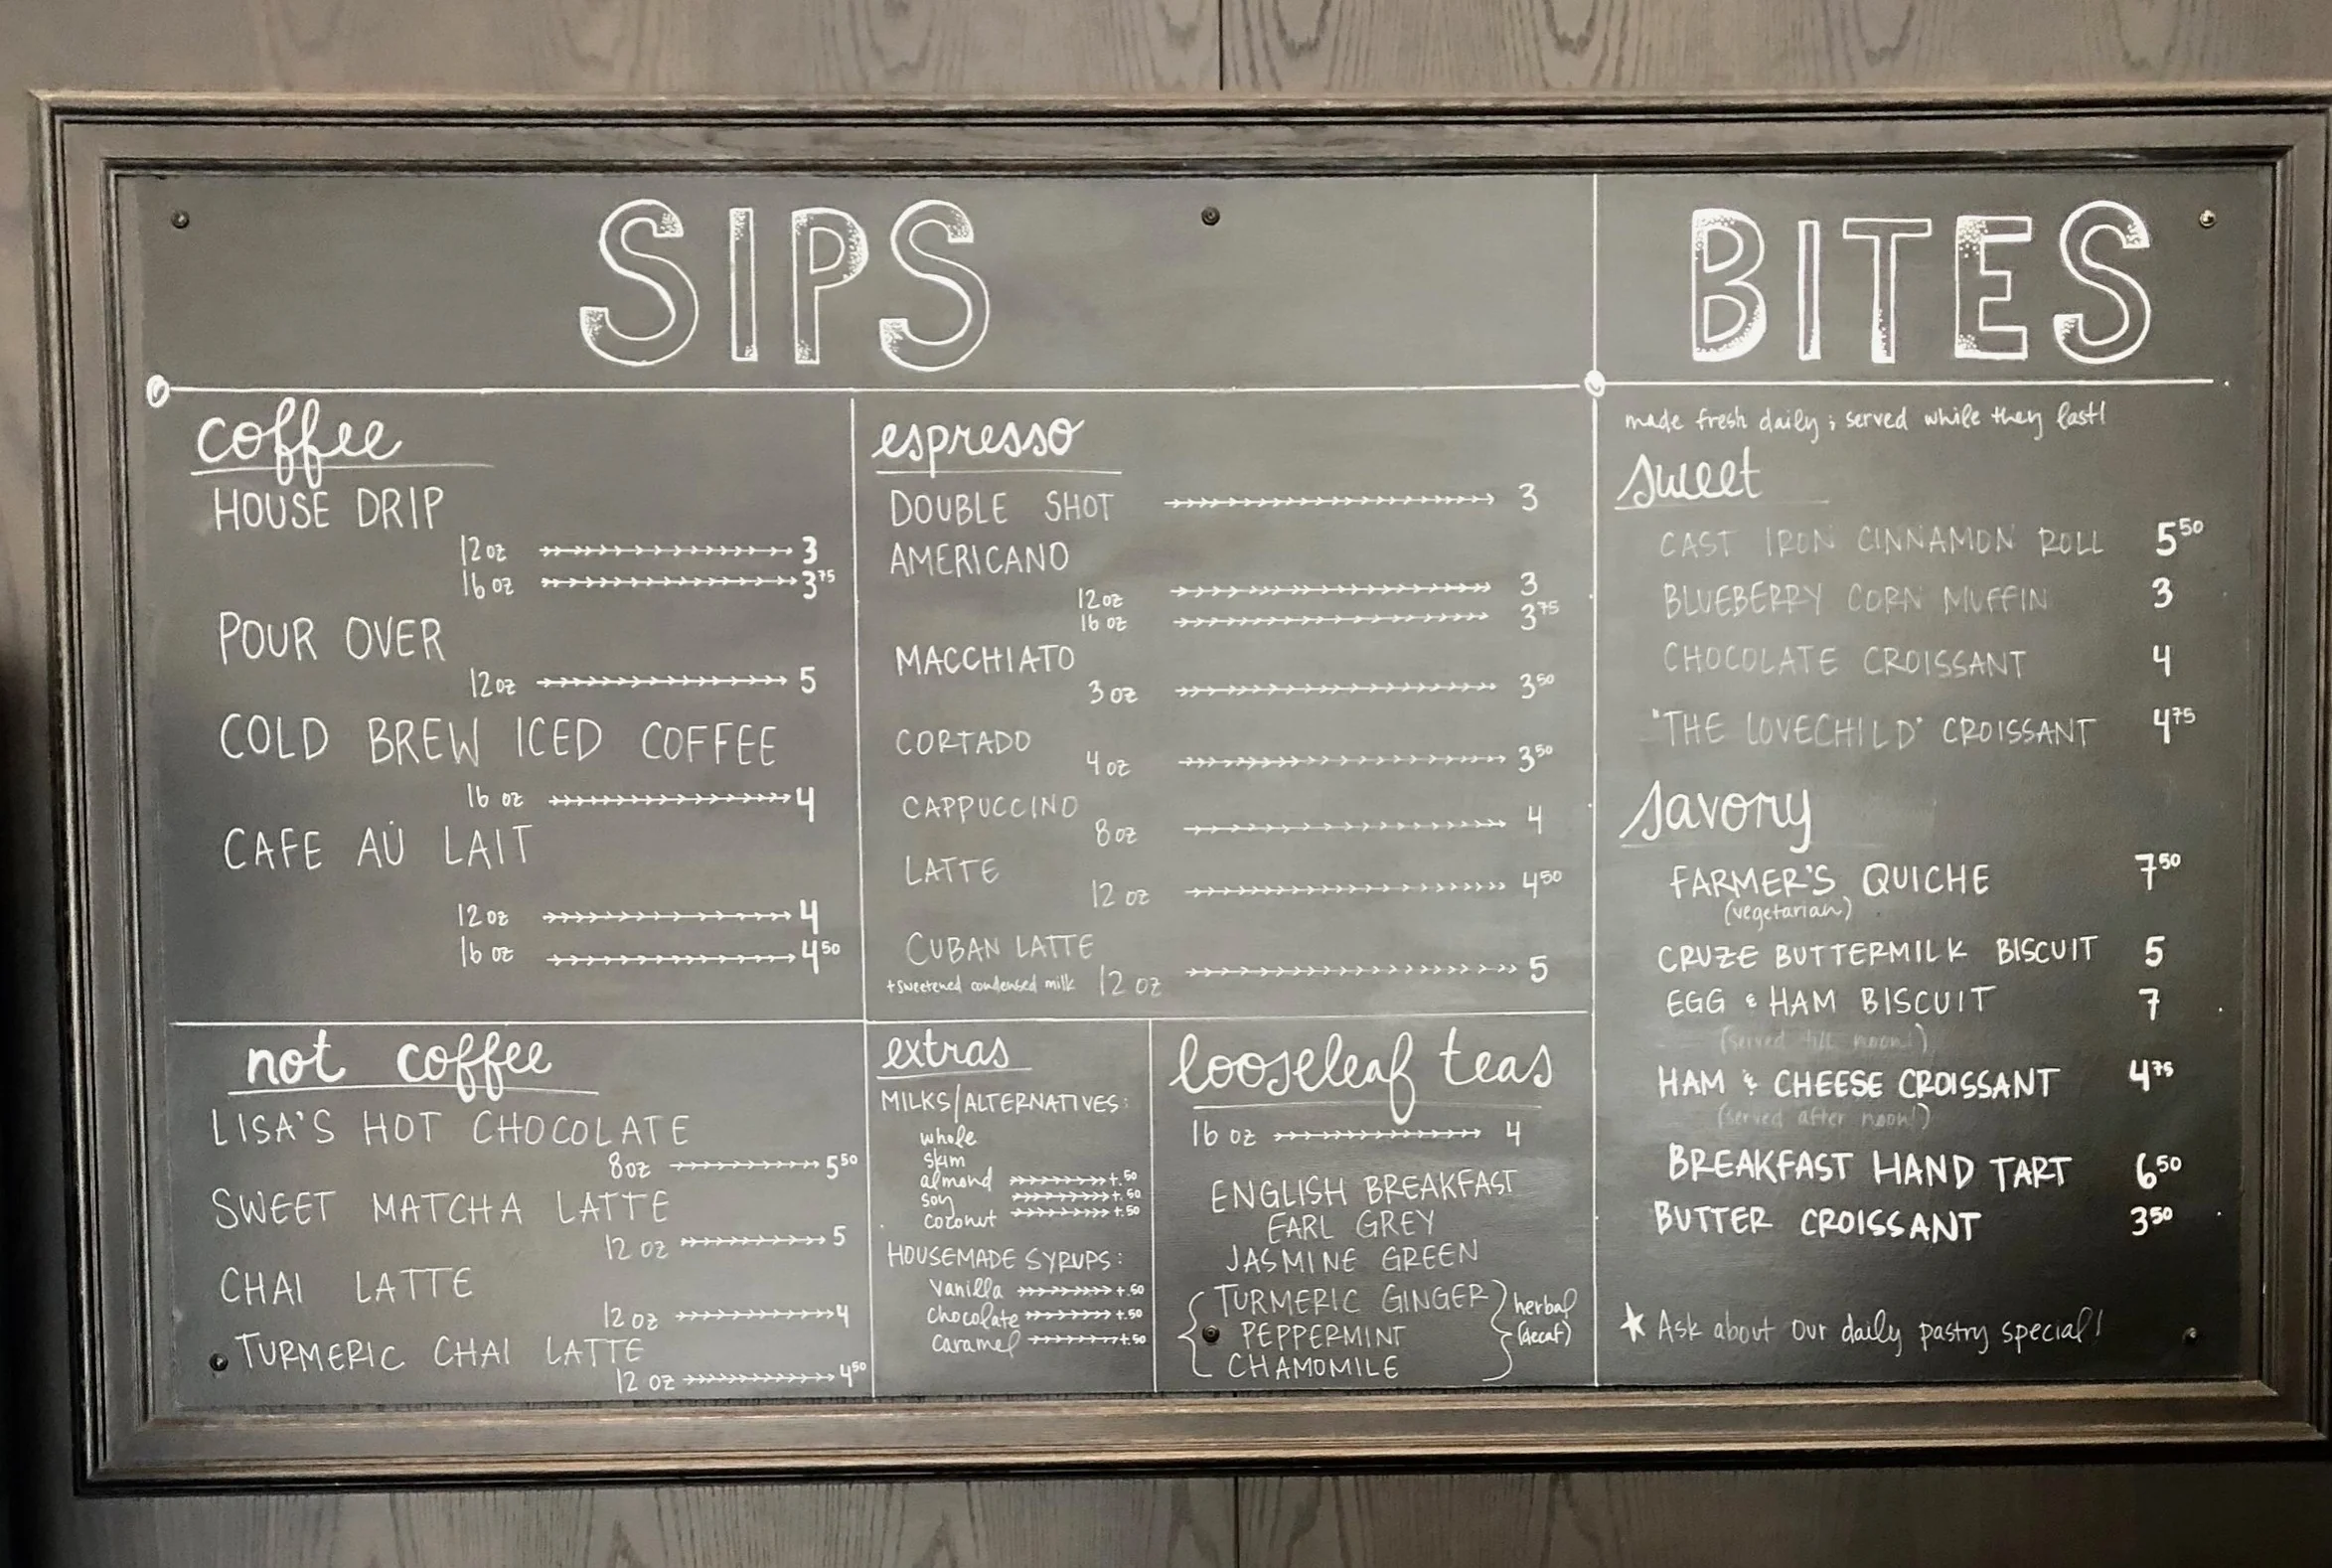 SIPS
coffee
HOUSE DRIP
12 oz 3
16 oz 3 75
POUR OVER
12 oz 5
COLD BREW ICED COFFEE
16 oz 4
CAFE AU LAIT
12 oz 4
16 oz 4 50
espresso
DOUBLE SHOT 3
AMERICANO
12 oz 3
16 oz 3 75
MACCHIATO
3 oz 3 50
CORTADO
4 oz 3 50
CAPPUCCINO
8 oz 4
LATTE
12 oz 4 50
CUBAN LATTE
+sweetened condensed milk 12 oz 5
not coffee
LISA'S HOT CHOCOLATE
8 oz 5 50
SWEET MATCHA LATTE
12 oz 5
CHAI LATTE
12 oz 4
TURMERIC CHAI LATTE
12 oz 4 50
extras
MILKS/ALTERNATIVES:
whole
skim
almond +.50
soy +.50
coconut +.50
HOUSEMADE SYRUPS:
Vanilla +.50
chocolate +.50
caramel +.50
looseleaf teas
16 oz 4
ENGLISH BREAKFAST
EARL GREY
JASMINE GREEN
TURMERIC GINGER
PEPPERMINT
CHAMOMILE
herbal
(decaf)
BITES
made fresh daily ; served while they last!
sweet
CAST IRON CINNAMON ROLL 5 50
BLUEBERRY CORN MUFFIN 3
CHOCOLATE CROISSANT 4
"THE LOVECHILD" CROISSANT 4 75
savory
FARMER'S QUICHE 7 50
(vegetarian)
CRUZE BUTTERMILK BISCUIT 5
EGG & HAM BISCUIT 7
(served till noon!)
HAM & CHEESE CROISSANT 4 75
(served after noon!)
BREAKFAST HAND TART 6 50
BUTTER CROISSANT 3 50
★ Ask about our daily pastry special!